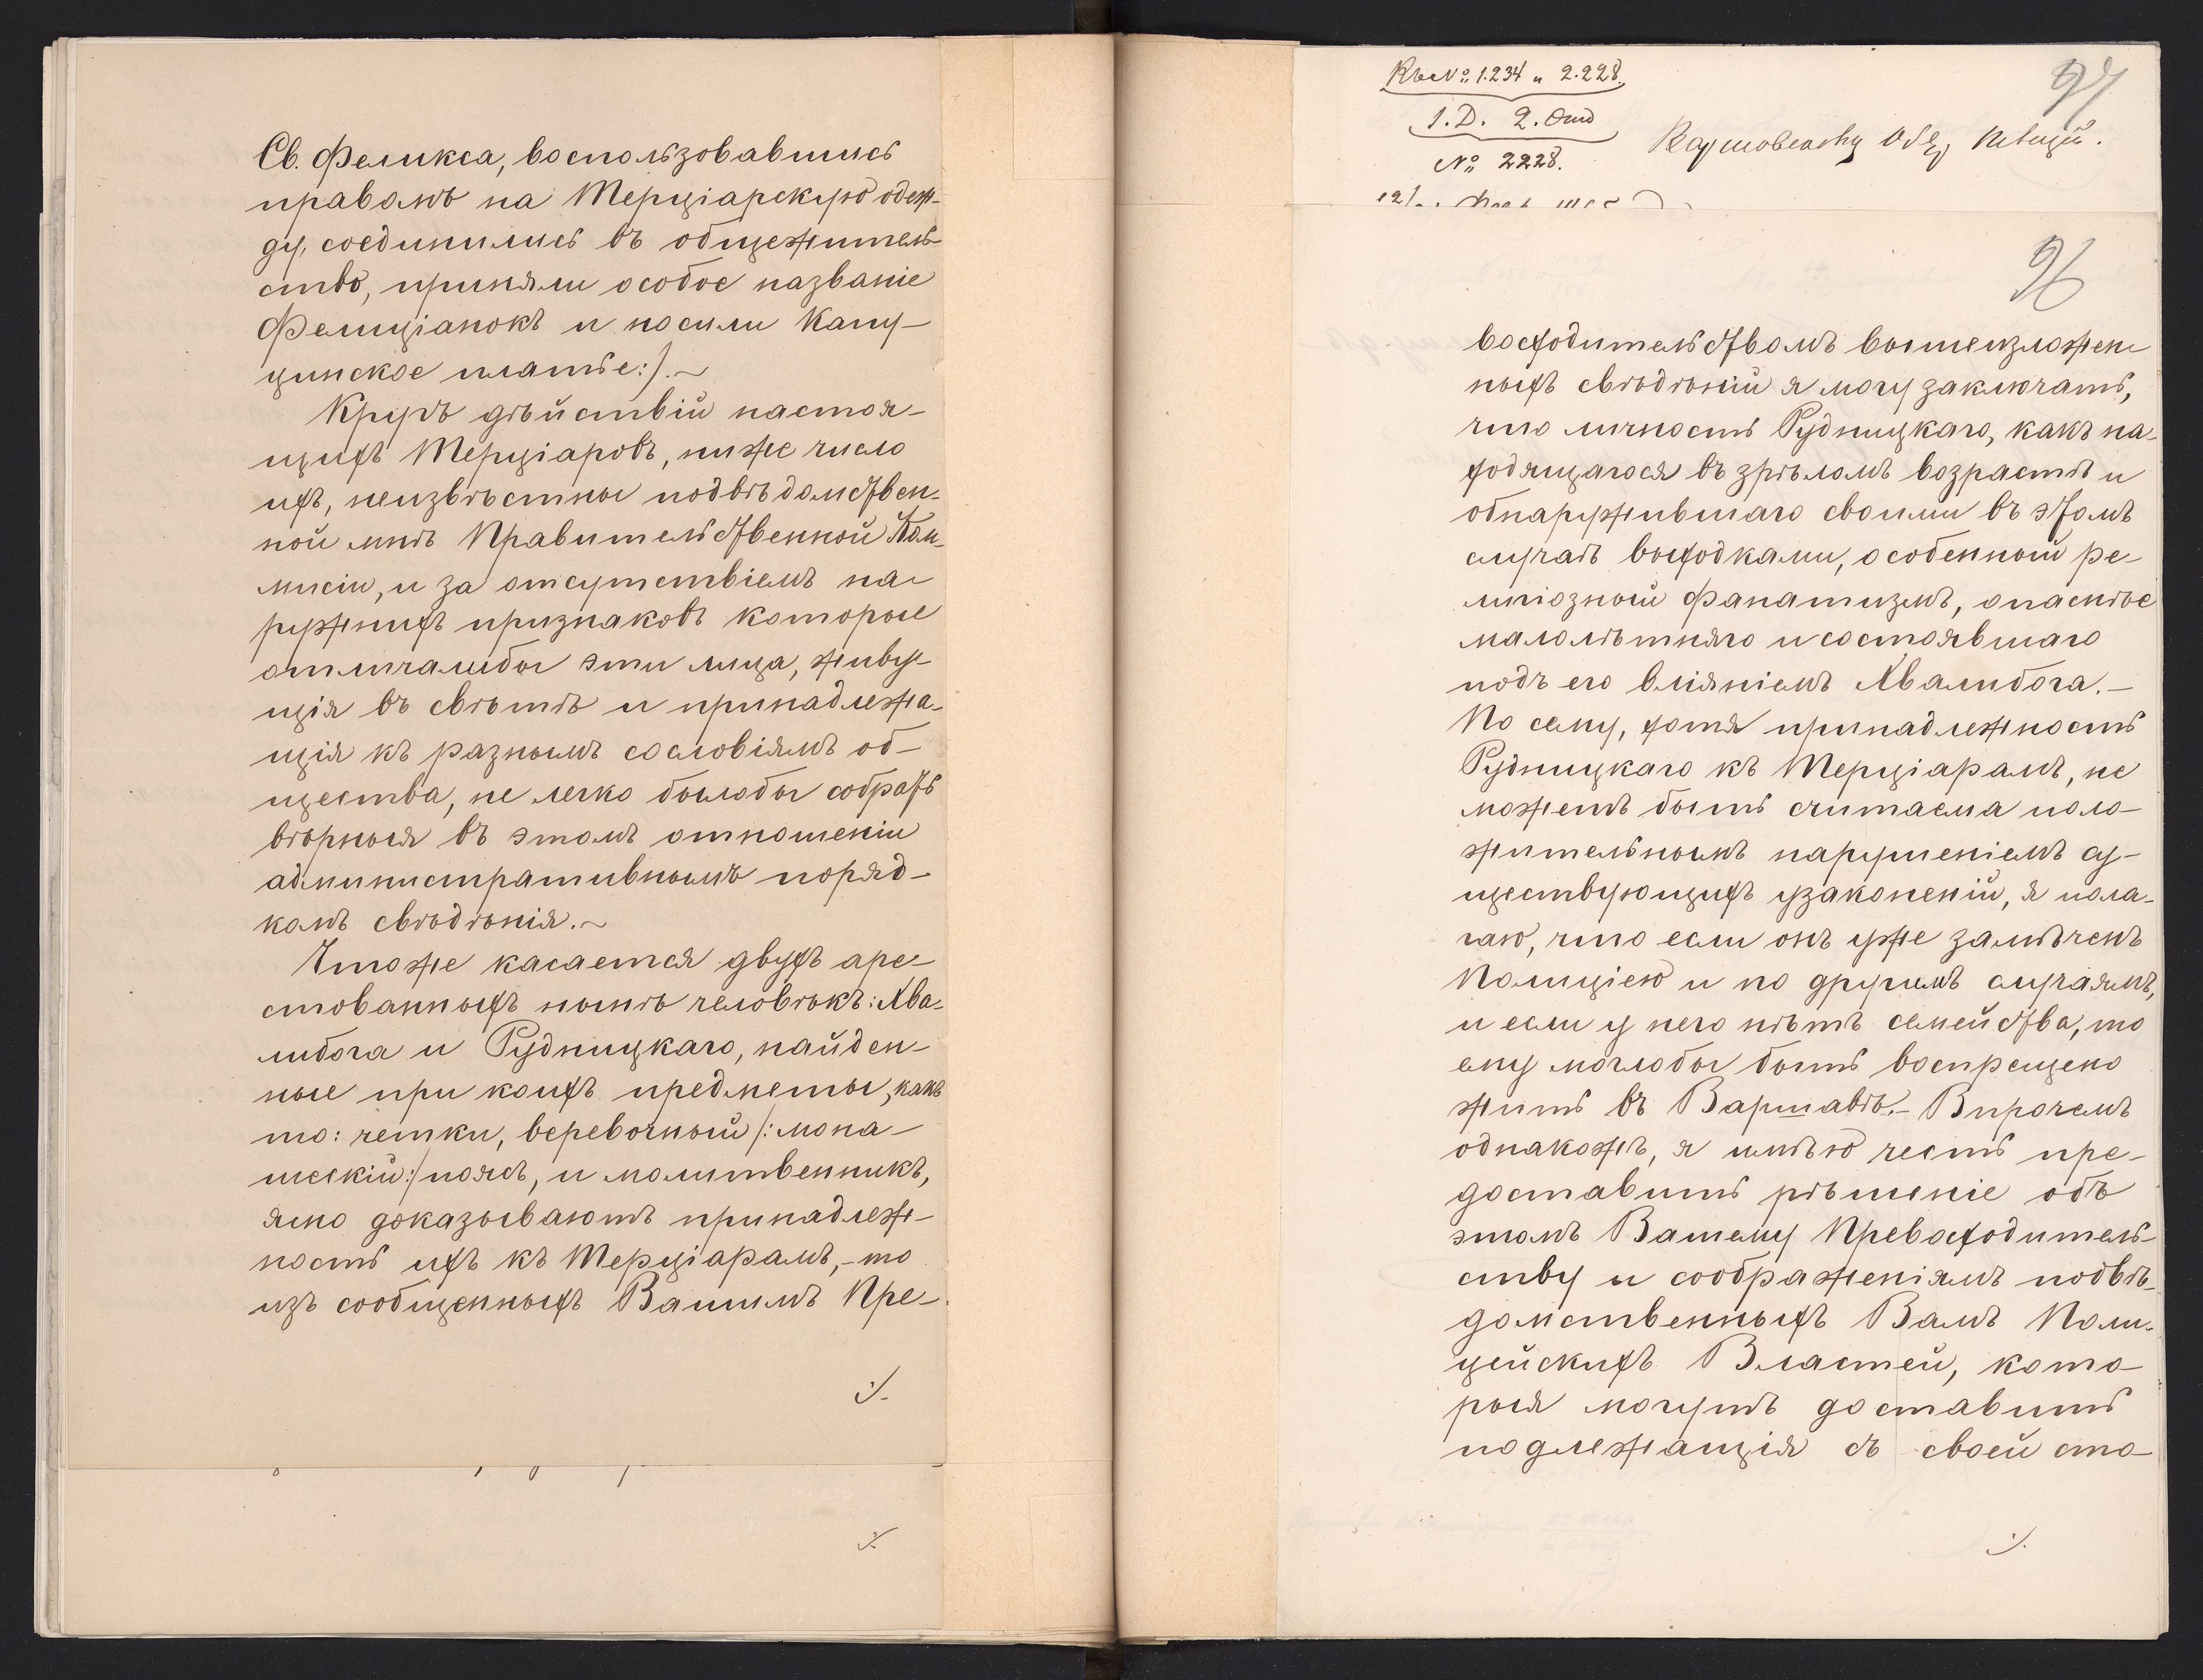 Св. Феликса, воспользовавшись
правомъ на Терціарскую одеж-
ду, соединились въ общежитель-
ство, приняли особое названіе
Фелиціанокъ и носили Капу-
цинское платье:/.~
Кругъ дѣйствій настоя-
щихъ Терціаровъ, ниже число
ихъ, неизвѣстны подвѣдомствен-
ной мнѣ Правительственной Ком-
мисіи, и за отсутствіемъ на-
ружнихъ признаковъ которые
отличалибы эти лица, живу-
щія въ свѣтѣ и принадлежа-
щія къ разнымъ сословіямъ об-
щества, не легко былобы собрать
вѣрныя въ этомъ отношеніи
административнымъ поряд-
комъ свѣдѣнія.~
Чтоже касается двухъ аре-
стованныхъ нынѣ человѣкъ: Хва-
либога и Рудницкаго, найден-
ные при коихъ предметы, какъ
то: четки, веревочный /:мона-
шескій:/ поясъ, и молитвенникъ,
ясно доказываютъ принадлеж-
ность ихъ къ Терціарамъ,- то
изъ сообщенныхъ Вашимъ Пре-
./.
./.
Къ № 1.234 и 2.228.
1. D. 2. Отд
№ 2228.
97
96
восходительствомъ вышеизложен-
ныхъ свѣдѣній я могу заключать,
что личность Рудницкаго, какъ на-
ходящагося въ зрѣломъ возрастѣ и
обнаружившаго своими въ этомъ
случаѣ выходками, особенный ре-
лигіозный фанатизмъ, опаснѣе
малолѣтняго и состоявшаго
подъ его вліяніемъ Хвалибога.-
По сему, хотя принадлежность
Рудницкаго къ Терціарамъ, не
можетъ быть считаема поло-
жительнымъ нарушеніемъ су-
ществующихъ узаконеній, я пола-
гаю, что если онъ уже замѣченъ
Полиціею и по другимъ случаямъ,
и если у него нѣтъ семейства, то
ему моглобы быть воспрещено
жить въ Варшавѣ.- Впрочемъ
однакожъ, я имѣю честь пре-
доставить рѣшеніе объ
этомъ Вашему Превосходитель-
ству и соображеніямъ подвѣ-
домственныхъ Вамъ Поли-
цейскихъ Властей, кото-
рыя могутъ доставить
подлежащія съ своей сто-
./.